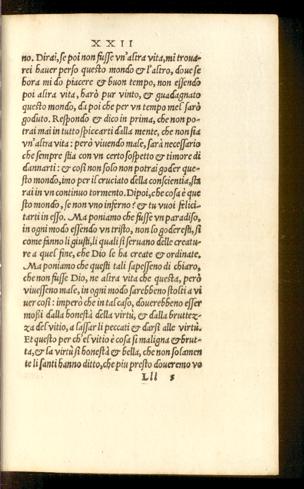 XXII
no. Dirai, se poi non fusse vn'altra vita, mi trouar-
rei hauer perso questo mondo & l'altro, doue se
hora mi do piacere & buon tempo, non essendo
poi altra vita, harò pur vinto, & guadagnato
questo mondo, da poi che per vn tempo mel sarò
goduto. Respondo & dico in prima, che non po-
trai mai in tutto spiccarti dalla mente, che non sia
vn'altra vita: però viuendo male, sarà necessario
che sempre stia con vn certo sospetto & timore di
dannarti: & cosi non solo non potrai goder que-
sto mondo, imo per il cruciato della conscientia, sta
rai in vn continuo tormento. Dipoi, che cosa è que
sto mondo, se non vno inferno? & tu vuoi felici-
tarti in esso. Ma poniamo che fusse vn paradiso,
in ogni modo essendo vn tristo, non lo goderesti, si
come fanno li giusti, li quali si seruano delle creatu-
re a quel fine, che Dio le ha create & ordinate.
Ma poniamo che questi tali sapesseno di chiaro,
che non fusse Dio, ne altra vita che questa, però
viuesseno male, in ogni modo sarebbeno stolti a vi
uer cosi: imperò che in tal caso, douerebbeno esser
moßi dalla bonestà della virtù, & dalla bruttez-
za del vitio, a lassar li peccati & darsi alle virtù.
Et questo per ch'el vitio è cosa si maligna & brut-
ta, & la virtù si honestà & bella, che non solamen
te li santi hanno ditto, che piu presto doueremo vo
Lll 5